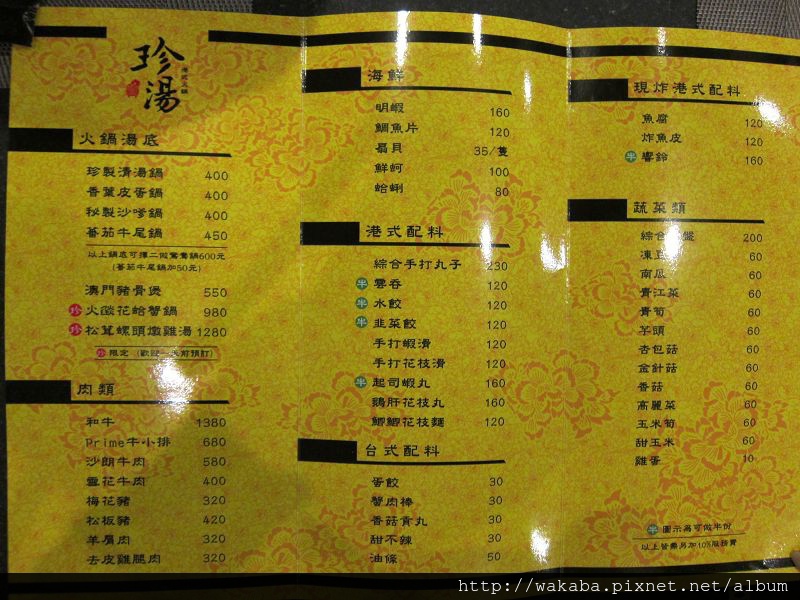 珍湯
港式火鍋
火鍋湯底
珍製清湯鍋 400
香葉皮蛋鍋 400
秘製沙嗲鍋 400
蕃茄牛尾鍋 450
以上鍋底可擇二做鴛鴦鍋600元
(蕃茄牛尾鍋加50元)
澳門豬骨煲 550
珍 火燄花蛤蟹鍋 980
珍 松茸螺頭燉雞湯 1280
珍 限定 (歡迎一天前預訂)
肉類
和牛 1380
Prime牛小排 680
沙朗牛肉 580
雪花牛肉 400
梅花豬 320
松板豬 420
羊肩肉 320
去皮雞腿肉 320
海鮮
明蝦 160
鯛魚片 120
扇貝 35/隻
鮮蚵 100
蛤蜊 80
港式配料
綜合手打丸子 230
半 雲吞 120
半 水餃 120
半 韭菜餃 120
手打蝦滑 120
手打花枝滑 120
半 起司蝦丸 160
鵝肝花枝丸 160
鯽鯽花枝麵 120
台式配料
蛋餃 30
蟹肉棒 30
香菇貢丸 30
甜不辣 30
油條 50
現炸港式配料
魚腐 120
炸魚皮 120
半 響鈴 160
蔬菜類
綜合 盤 200
凍豆 60
南瓜 60
青江菜 60
青筍 60
芋頭 60
杏包菇 60
金針菇 60
香菇 60
高麗菜 60
玉米筍 60
甜玉米 60
雞蛋 10
半 圖示為可做半份
以上皆需另加10%服務費
http://wakaba.pixnet.net/album